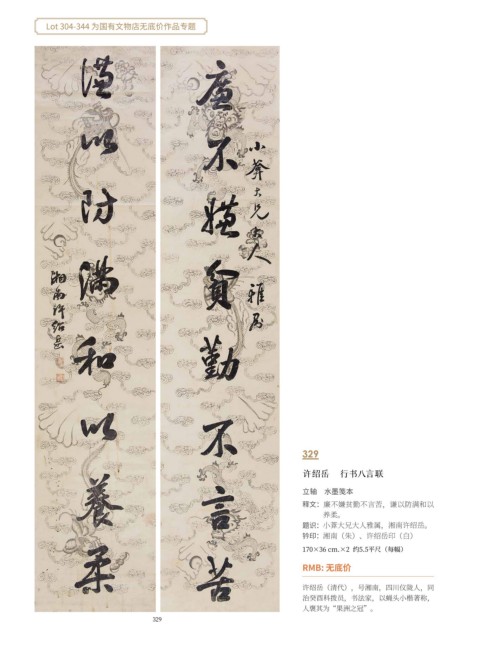 Lot 304-344 为国有文物店无底价作品专题
廉不嫌貧勤不言苦
小葊大兄大人 雅屬
谦以防满和以養柔
湘南许绍岳
329
许绍岳 行书八言联
立轴 水墨笺本
释文：廉不嫌贫勤不言苦，谦以防满和以
养柔。
题识：小葊大兄大人雅属，湘南许绍岳。
钤印：湘南（朱）、许绍岳印（白）
170×36 cm.×2 约5.5平尺（每幅）
RMB: 无底价
许绍岳（清代），号湘南，四川仪陇人，同
治癸酉科拨贡，书法家，以蝇头小楷著称，
人褒其为“果洲之冠”。
329